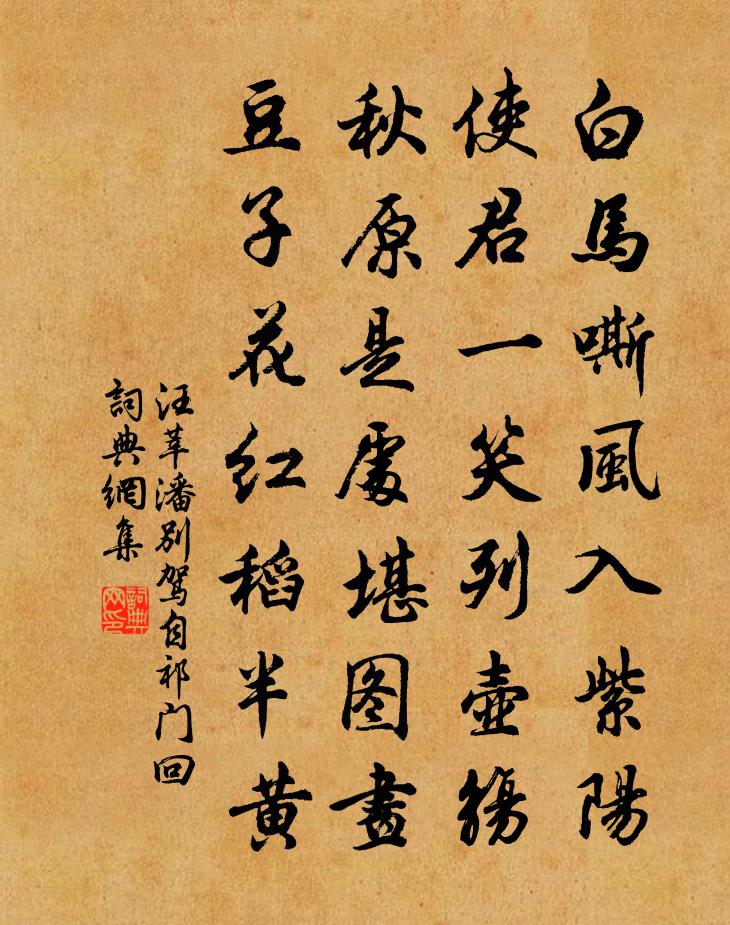 白馬嘶風入紫陽
使君一笑列壺觴
秋原是處堪图畫
豆子花红稻半黄
汪莘潘別驾自祁门回
詞典網集
詞典网印